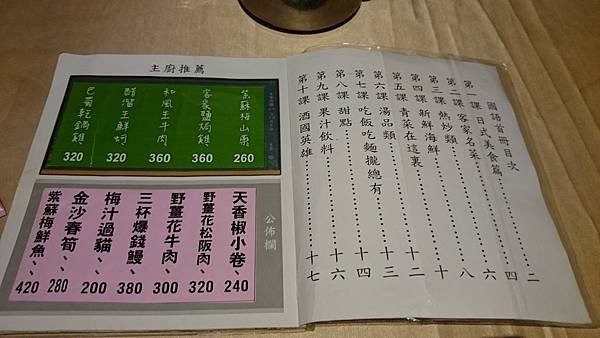 主廚推薦
紫蘇梅山東 260
客家鹽焗雞 360
和風王牛肉 360
醋溜王鮮蚵 320
巴蜀乾鍋雞 320
公佈欄
天香椒小卷、240
野薑花松阪肉、320
野薑花牛肉、、300
三杯爆錢鰻、380
梅汁過貓、、200
金沙春筍、、280
紫蘇梅鮮魚、、420
國語首冊目次
第一課 日式美食篇………二
第二課 客家名菜………四
第三課 熱炒類………六
第四課 新鮮海鮮………八
第五課 青菜在這裏………十
第六課 湯品類………十二
第七課 吃飯吃麵攏總有………十三
第八課 甜點………十四
第九課 果汁飲料………十六
第十課 酒國英雄………十七